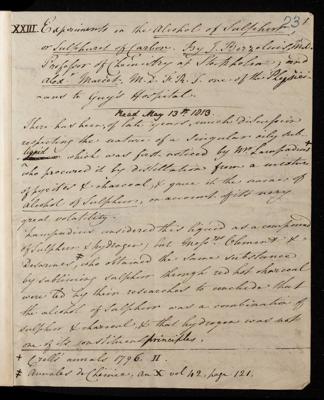 23
XXIII. Experiments on the Alcohol of Sulphur,
or Sulphuret of Carbon. By J. Berzelius, M.D.
Professor of Chemistry at Stockholm; and
Alex. Marcet, M.D. F.R.S. one of the Physici-
ans to Guy's Hospital.
Read May 13th 1813.
There has been, of late years, much discussion
respecting the nature of a singular oily sub-
which was first noticed by Mr Lampadius +
who procured it by distillation from a mixture
of pyrites & charcoal, & gave it the name of
alcohol of Sulphur, on account of its very
great volatility.
Lampadius considered this liquid as a compound
of Sulphur & hydrogen; but Messrs Clement &
Desormes, ‡ who obtained the same substance
by subliming sulphur through red hot charcoal
were led by their researches to conclude that
the alcohol of Sulphur was a combination of
sulphur & charcoal & that hydrogen was not
one of its constituent principles.
+ Crell's annals 1796. II.
‡ Annales de Chimie, An X vol 42, page 121.